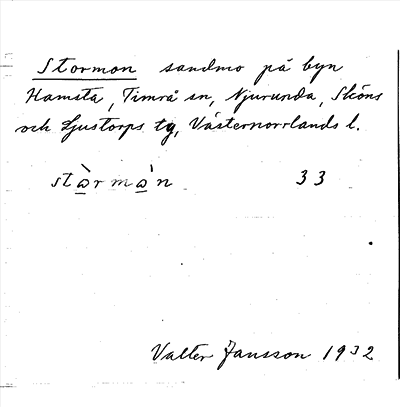 Stormon sandmo på byn
Hamsta, Timrå sn, Njurunda, Sköns
och Ljustorps tg, Västernorrlands l.
stàrmàn 33
Valter Jansson 1932